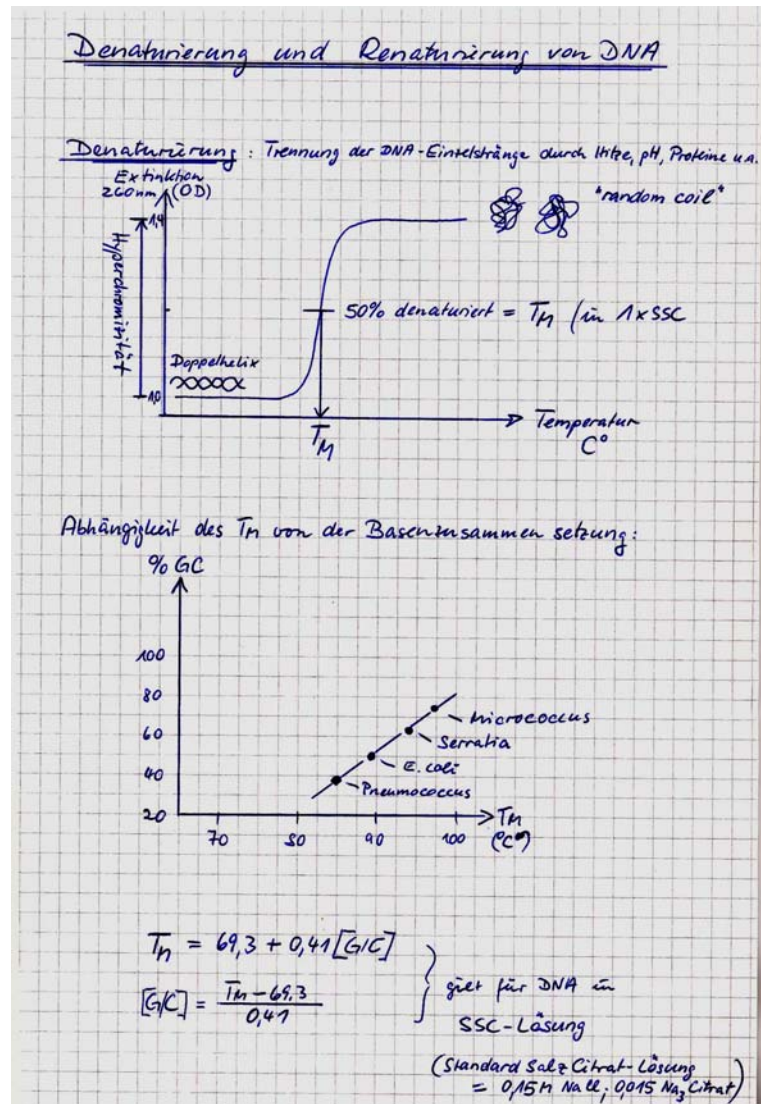 Denaturierung und Renaturierung von DNA
Denaturierung: Trennung der DNA-Einzelstränge durch Hitze, pH, Proteine u.a.
Extinktion
260nm (OD)
"random coil"
1,4
Hyperchromizität
50% denaturiert = TM (in 1xSSC
Doppelhelix
1,0
TM
Temperatur
C°
Abhängigkeit des TM von der Basenzusammen setzung:
% GC
100
80
60
40
20
Micrococcus
Serratia
E. coli
Pneumococcus
70 80 90 100
TM
(°C)
TM = 69,3 + 0,41 [G/C]
[G/C] = TM - 69,3 / 0,41
gilt für DNA in
SSC-Lösung
(Standard Salz Citrat-Lösung
= 0,15M NaCl; 0,015 Na3 Citrat)